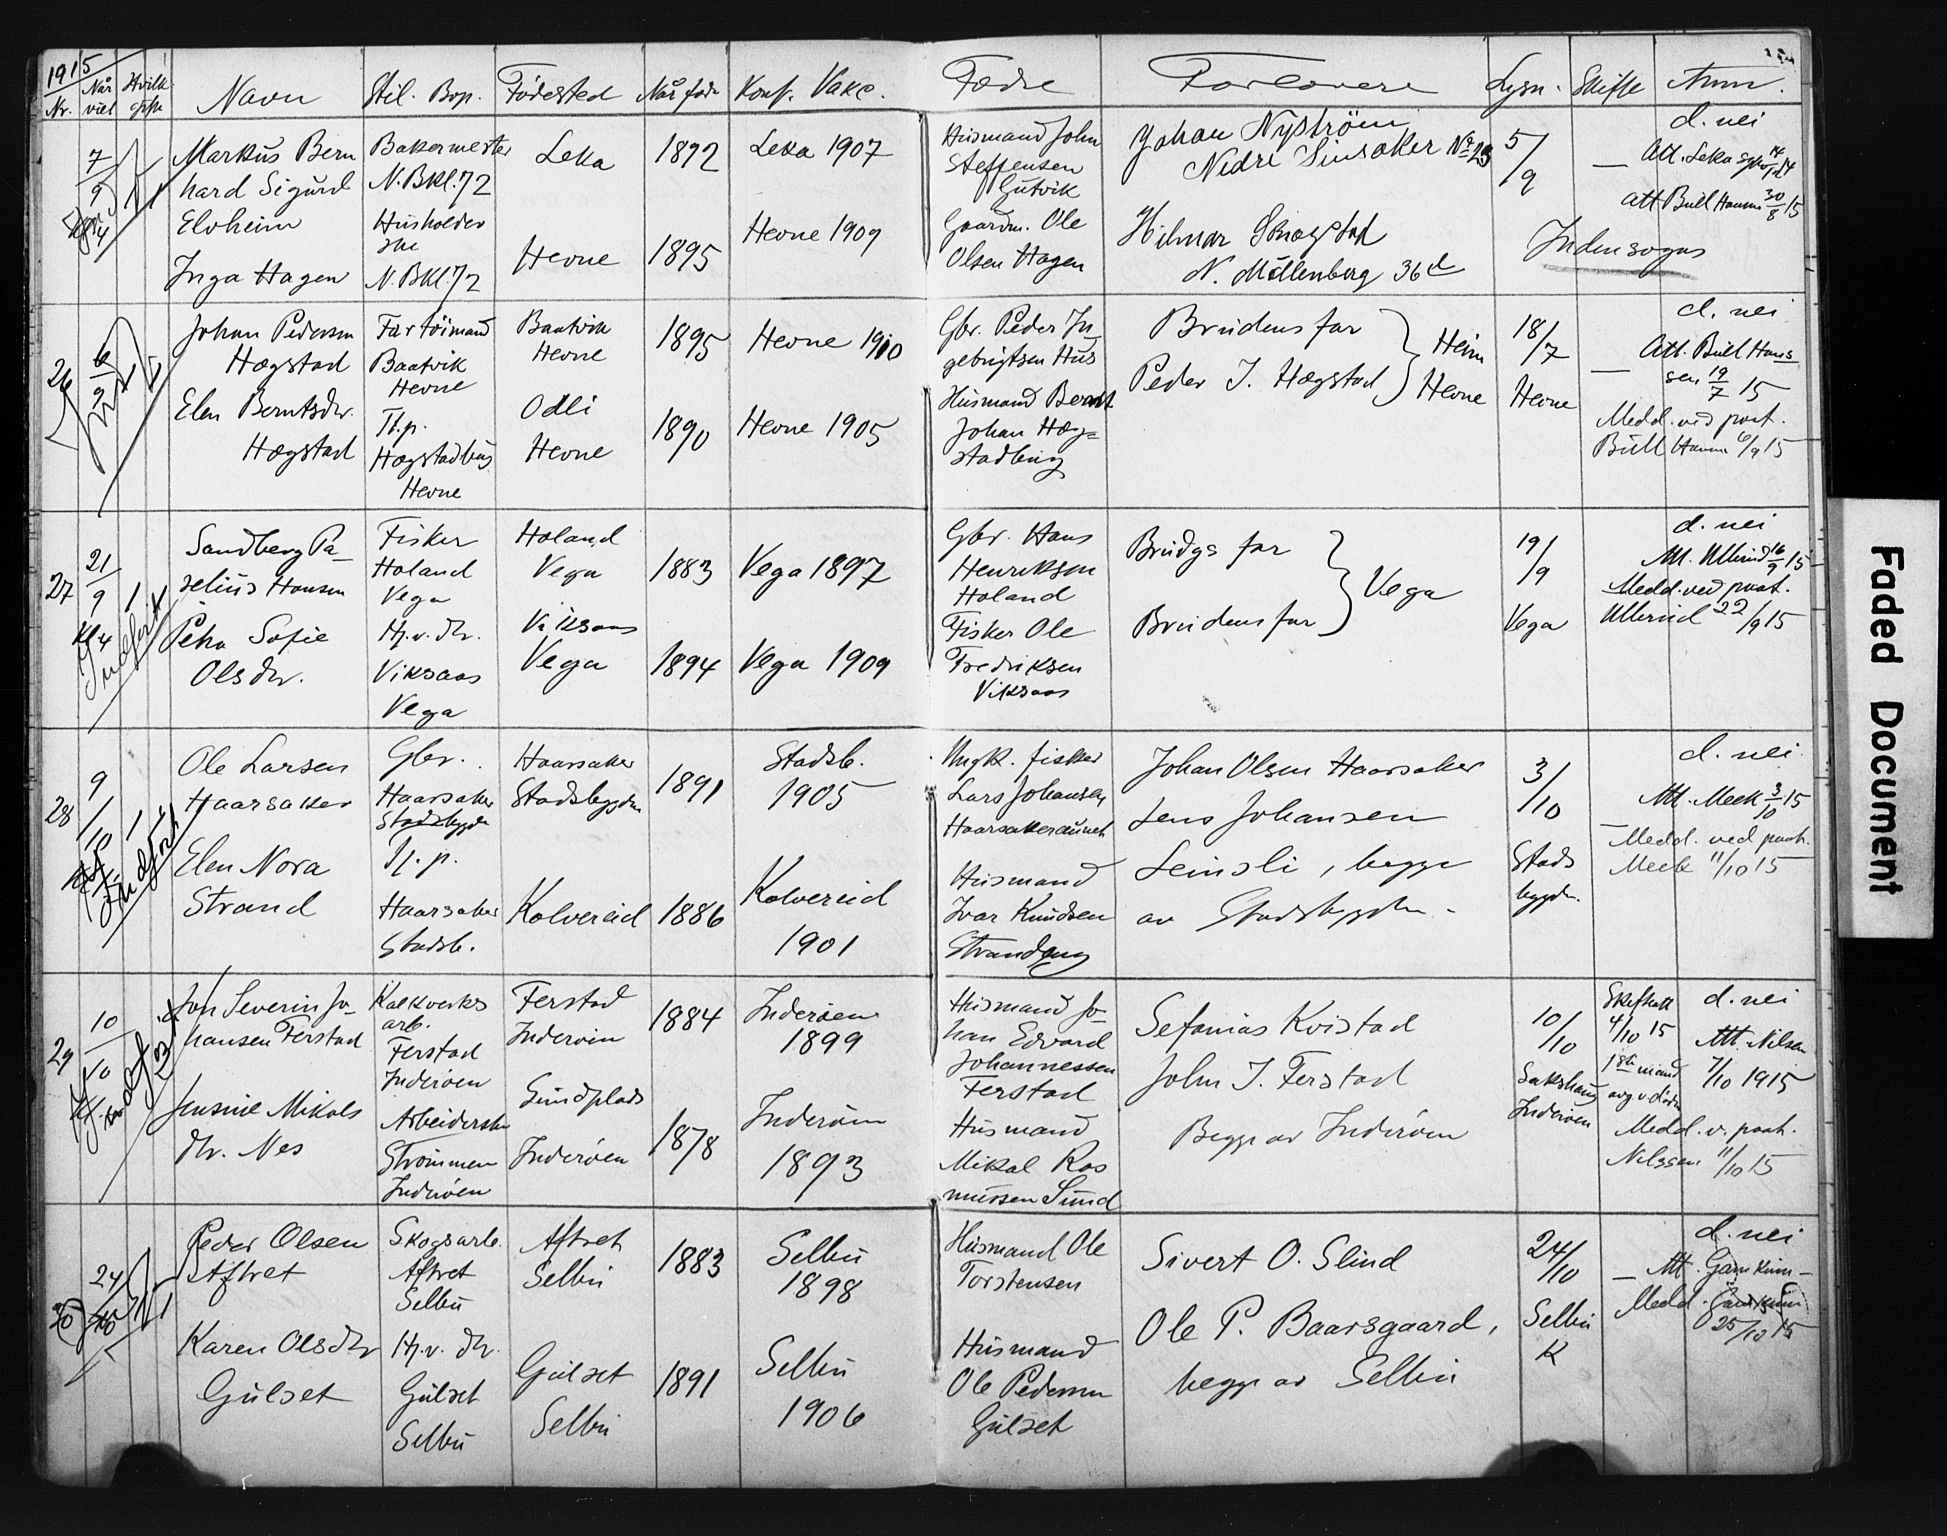 1915
Nr. Når viet Hvilk gift Navn Stil. Bop. Fødested Når født Konf. Vakc. Fædre Forlovere Lysn. Skifte Anm.
7/9
Markus Bern
hard Sigurd
Elvheim
Bakermester
N. Bkl. 72
Leka
1892
Leka 1907
Husmand John
Steffensen
Gutvik
Johan Nyström
Nedre Sinsaker No 23
5/9
—
d. nei
Att. Leka
Att Bull Hansen 30/8 15
Inga Hagen
Husholder
ske
N. Bkl. 72
Hevne
1895
Hevne 1909
Gaardm. Ole
Olsen Hagen
Hilmar
N. Möllenberg 36d
Indensogns
26
6/9
Johan Pedersen
Hægstad
Fartöimand
Baatvik
Hevne
Baatvik
Hevne
1895
Hevne 1910
Gbr. Peder In
gebrigtsen Hus
Brudens far
Peder I. Hægstad
Heim
Hevne
18/7
Hevne
—
d. nei
Att. Bull Hans
sen 19/7 15
Medd. ved post.
Bull Hansen 6/9 15
Elen Berntsdtr.
Hægstad
Tj.p.
Hægstadbug
Hevne
Odli
Hevne
1890
Hevne 1905
Husmand Bernt
Johan Hæg=
stadbug
27
21/9
1
Kl 4
Indført
Sandberg Pa
selius Hansen
Fisker
Holand
Vega
Holand
Vega
1883
Vega 1897
Gbr. Hans
Henriksen
Holand
Brudgs far
Brudens far
Vega
19/9
Vega
d. nei
Att. Ullerud 16/9 15
Medd. ved post.
Ullerud 22/9 15
Petra Sofie
Olsdtr.
Hj.v. dtr.
Viksaas
Vega
Viksaas
Vega
1894
Vega 1909
Fisker Ole
Fredriksen
Viksaas
28
9/10
1
Indført
Ole Larsen
Haarsaker
Gbr.
Haarsaker
Stadsbygden
Haarsaker
Stadsbygden
1891
Stadsb.
1905
Ungk. fisker
Lars Johansen
Haarsakeraunet
Johan Olsen Haarsaker
Jens Johansen
Leinsli, begge
av Stadsbygden.
3/10
Stads
bygden.
—
d. nei
Att. Meek 3/10 15
Medd. ved post.
Meek 11/10 15
Elen Nora
Strand
Tj. p.
Haarsaker
Stadsb.
Kolvereid
1886
Kolvereid
1901
Husmand
Ivar Knudsen
Strandeng
29
10/10
Jon Severin Jo
hansen Ferstad
Kalkverks
arb.
Ferstad
Inderøen
Ferstad
Inderøen
1884
Inderøen
1899
Husmand Jo
han Edvard
Johannessen
Ferstad
Sefanias Kvistad
John J. Ferstad
Begge av Inderøen
10/10
Sakshaug
Inderøen
Skifteatt
4/10 15
1ste mand
avg. v. døden
d. nei
Att. Nilsen
7/10 1915
Medd. v. post.
Nilssen 11/10 15
Jensine Mikals
dtr. Nes
Arbeiderske
Strömmen
Inderøen
Sundplads
Inderøen
1878
Inderøen
1893
Husmand
Mikal Ras
mussen Sund
30
24/10
Peder Olsen
Aftret
Skogsarb.
Aftret
Selbu
Aftret
Selbu
1883
Selbu
1898
Husmand Ole
Torstensen
Sivert O. Slind
Ole P. Baarsgaard,
begge av Selbu
24/10
Selbu
K
—
d. nei
Att.
Medd.
25/10 15
Karen Olsdtr
Gulset
Hj.v. dtr.
Gulset
Selbu
Gulset
Selbu
1891
Selbu
1906
Husmand
Ole Pedersen
Gulset
Faded Document